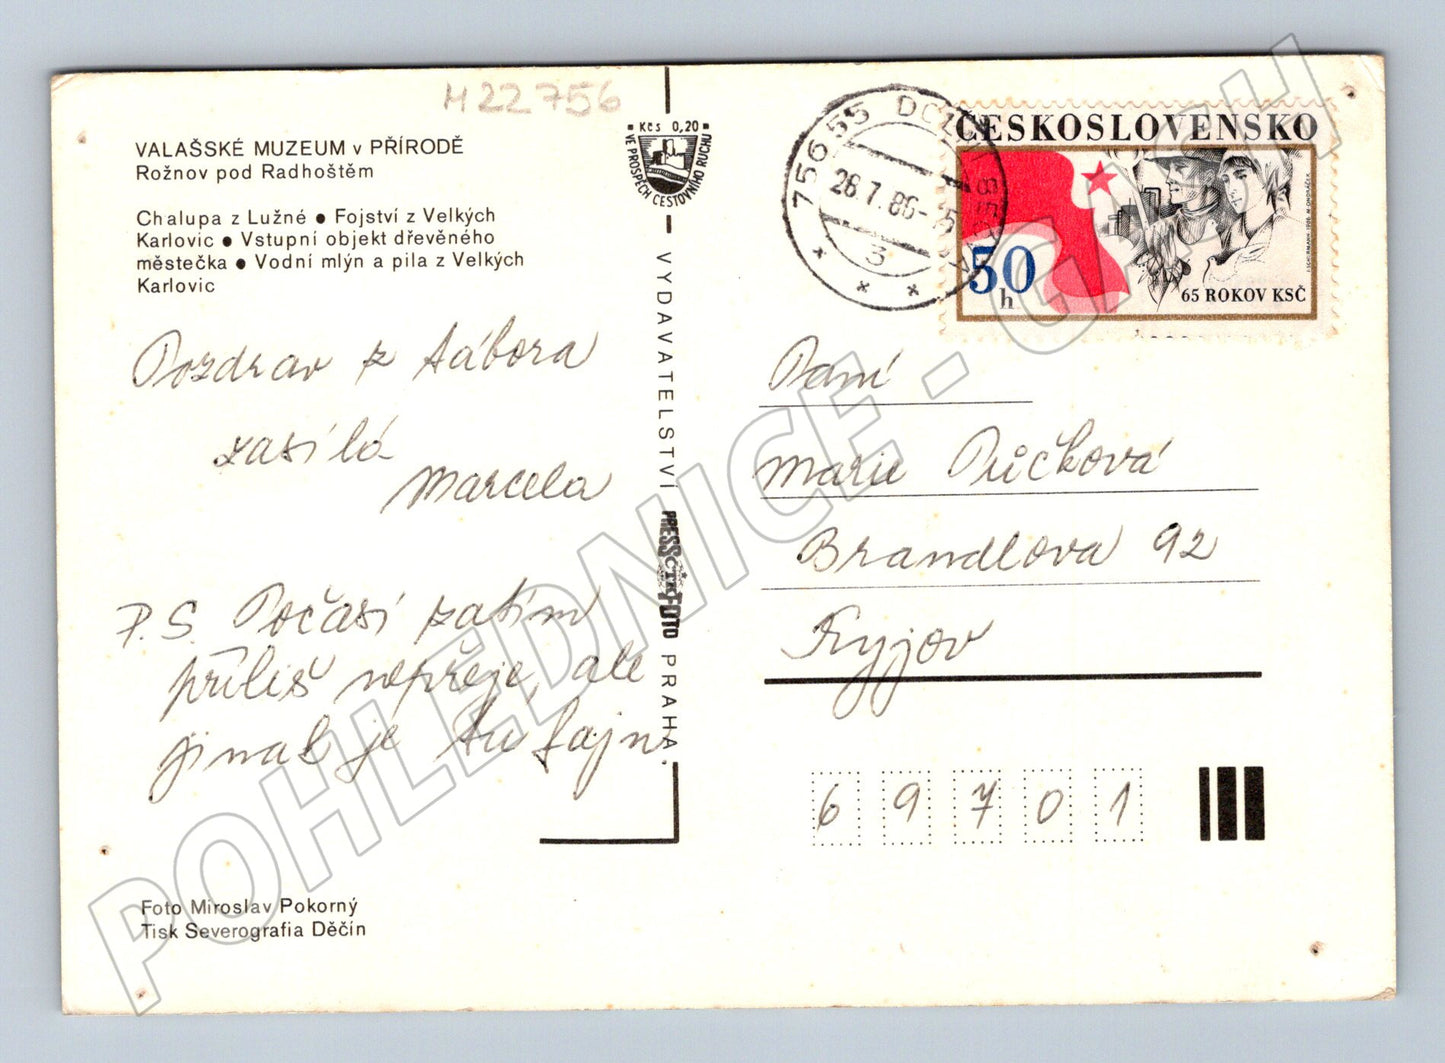 M22756
VALAŠSKÉ MUZEUM v PŘÍRODĚ
Rožnov pod Radhoštěm
Chalupa z Lužné ● Fojství z Velkých
Karlovic ● Vstupní objekt dřevěného
městečka ● Vodní mlýn a pila z Velkých
Karlovic
Pozdrav z tábora
zasílá
Marcela
P.S. Počasí zatím
příliš nepřeje, ale
jinak je tu fajn.
Foto Miroslav Pokorný
Tisk Severografia Děčín
Kčs 0,20
VE PROSPĚCH CESTOVNÍHO RUCHU
VYDAVATELSTVÍ
PRESSFOTO
ČTK
PRAHA
75655
26.7.86-15
3
ČESKOSLOVENSKO
50
h
65 ROKOV KSČ
Paní
Marie Půčková
Brandlova 92
Kyjov
69701
POHLEDNICE - CASH